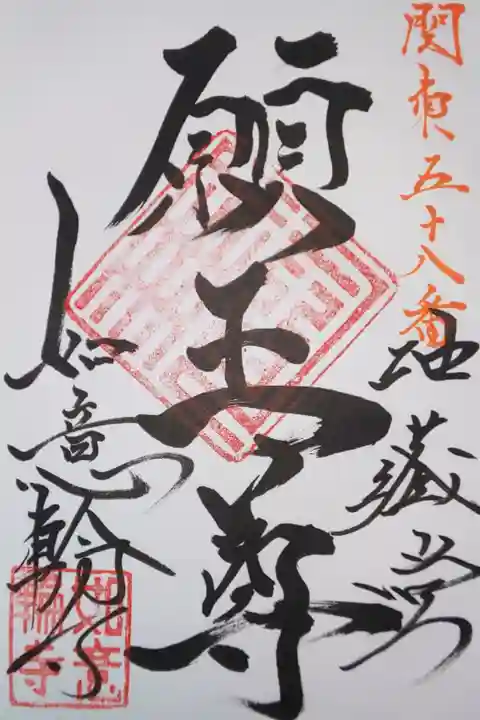 関東五十八番
地蔵尊
願王尊
如意輪寺
如意
輪寺